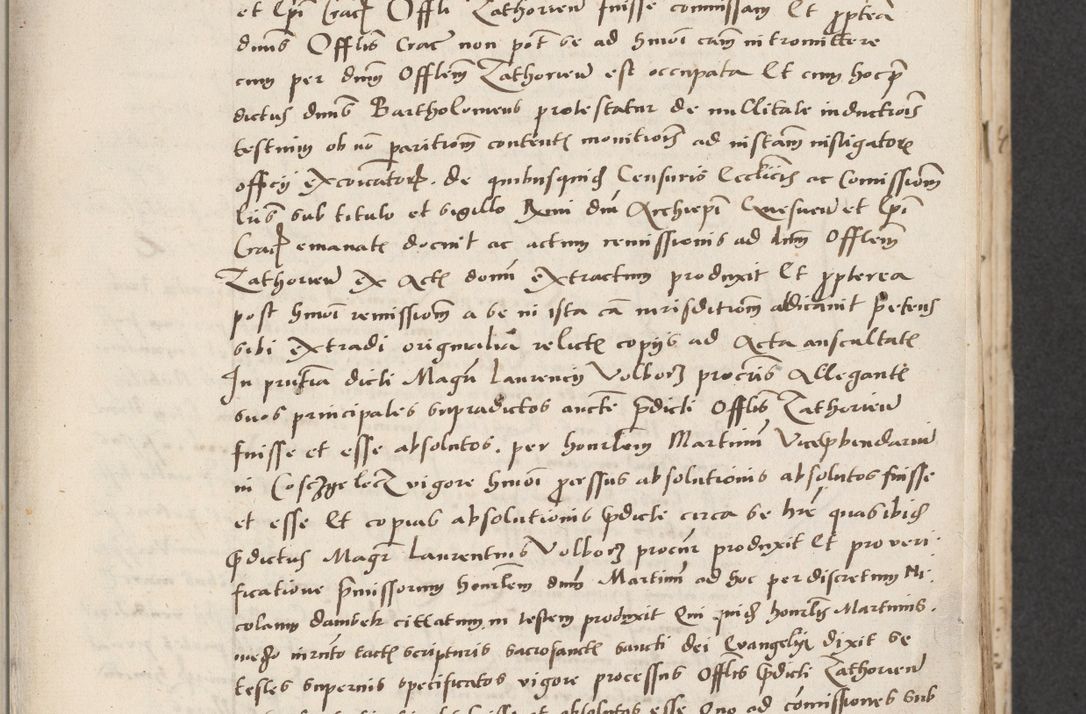 et Epi Crac Offli Zathorien fuisse commissam Et propterea
dnus Offlis Crac non pot se ad hmoi cam intromittere
cum per dnm Offlem Zathorien est occupata Et cum hoc p
dictus dnus Bartholomeus protestatur de nullitate inductiois
testium ob no paritiom content monitiois ad instam instigatore
officij excoicator. de quibusquid Censuris Ecclicis ac Comissiom
lris sub titulo et sigillo Rmi dni Archiepi Gnesnen et Epi
Crac emanatis docuit ac actum remissionis ad dnm Offlem
Zathorien ex Actis domi extractum produxit Et propterea
post hmoi remissiom a se in ista ca iurisditiom abdicauit petens
sibi extradi originalia relictis copijs ad Acta auscultatis
In pntia dicti Magri Laurencij Volborz procris Allegantis
suos principales supradictos aucte pdicti Offlis Zathorien
fuisse et esse absolutos. per honrlem Martinum Viceplebendarium
in Cosczyelecz vigore hmoi processus absolutionis absolutos fuisse
et esse Et copias absolutionis pdicte circa se hre quas ibid
pdictus Magr Laurentius Volborz procur produxit Et pro veri
ficatione pmissorum honrlem dnm Martinum ad hoc per discretum Ni
colaum dambek cittatum in testem produxit Qui quid honrlis Martinus.
medio iurnto tactis scripturis sacrosanctis sancti dei Evangelij dixit se
testes supernis specificatos vigore processus Offlis pdicti Zathorien
fuisse et absolutos esse Quo ad comissiones sub